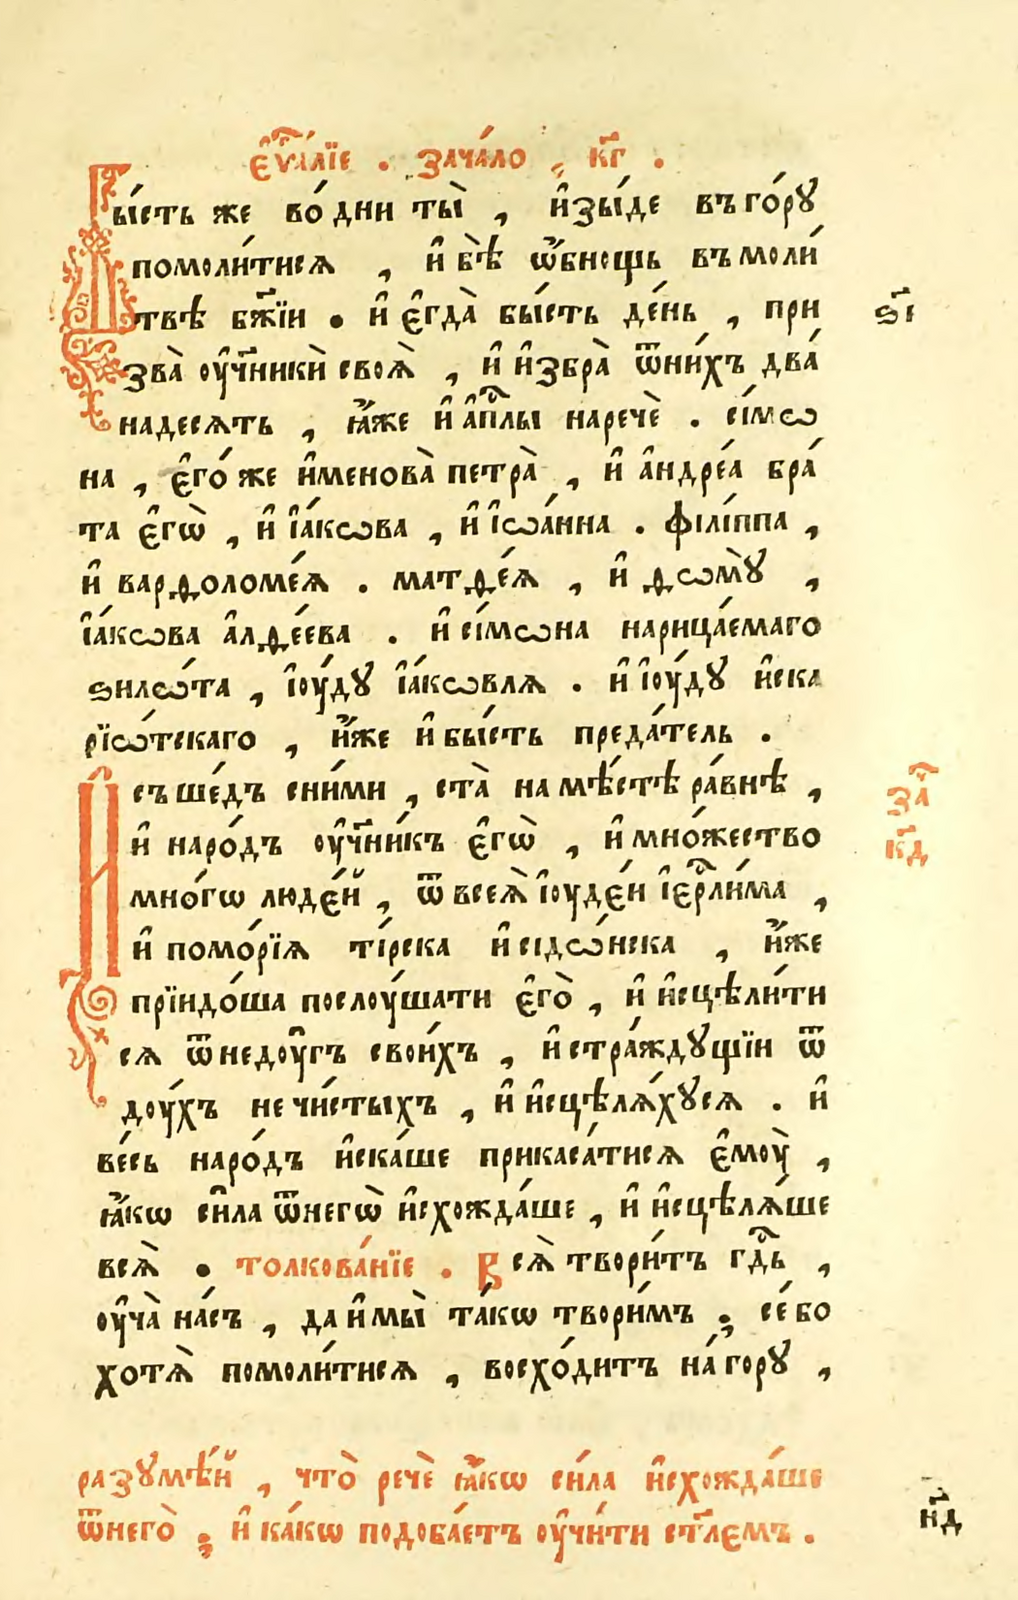 є҆ѵⷢ҇а́лїе . зача́ло , кг҃ .
Бы́сть же во́ дни ты̀ , и҆зы́де въ го́рꙋ
помоли́тисѧ , и҆ бѣ̀ ѡ҆бнощь въ моли́
твѣ бж҃їи . и҆ є҆гда̀ бы́сть де́нь , при
ѕ҃і
зва̀ оу҆чн҃икѝ своѧ̀ , и҆ и҆збра̀ ѿни́хъ два́
надесѧть , ꙗ҆́же и҆ а҆пⷭ҇лы наречѐ . сі́мѡ
на , є҆го́ же и҆менова̀ петра̀ , и҆ а҆ндре́а бра́
та є҆гѡ̀ , и҆ і҆а́кѡва , и҆ і҆ѡа́нна . філі́ппа ,
и҆ варѳоломе́ѧ . матѳе́ѧ , и҆ ѳѡмꙋ̀ ,
і҆а́кѡва а҆лѳе́ева . и҆ сі́мѡна нарица́емаго
ѕилѡ́та , і҆оу́дꙋ і҆а́кѡвлѧ . и҆ і҆оу́дꙋ и҆ска
рїѡ́тскаго , и҆́же и҆ бы́сть преда́тель .
И съшéдъ сни́ми , ста̀ на мѣ́стѣ ра́внѣ ,
заⷱ҇
и҆ наро́дъ оу҆чн҃и́къ є҆гѡ̀ , и҆ мно́жество
кд҃
мно́гѡ люде́й , ѿ всеѧ̀ і҆оуде́и і҆ерⷭ҇ли́ма ,
и҆ помо́рїѧ ті́рска и҆ сідѡ́нска , и҆́же
прїидо́ша послоу́шати є҆го̀ , и҆ и҆сцѣли́ти
сѧ ѿнедоу҆гъ свои́хъ , и҆ стра́ждꙋщїи ѿ
доу́хъ не чи́стыхъ , и҆ и҆сцѣлѧ́хꙋсѧ . и҆
ве́сь наро́дъ и҆ска́ше прикаса́тисѧ є҆моу̀ ,
ꙗ҆́кѡ си́ла ѿнегѡ̀ и҆схожда́ше , и҆ и҆сцѣлѧ́ше
всѧ̀ . толкова́нїе . Всѧ̀ твори́тъ гдⷭ҇ь ,
оу҆ча̀ на́съ , да и҆ мы̀ та́кѡ твори́мъ ; се́ бо
хотѧ̀ помоли́тисѧ , восхо́дитъ на́ горꙋ ,
разꙋмѣ́й , что̀ речѐ ꙗ҆́кѡ си́ла и҆схожда́ше
ѿнего̀ ; и҆ ка́кѡ подоба́етъ оу҆чи́ти ст҃лемъ .
нд҃